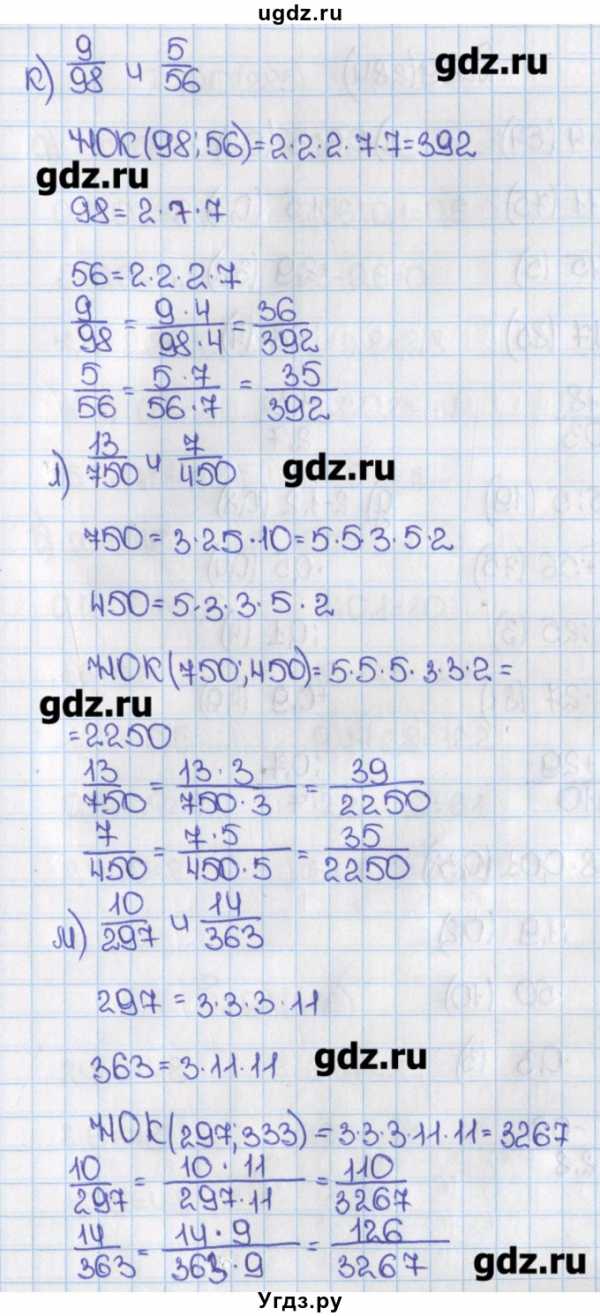 ugdz.ru
к) 9/98 и 5/56
gdz.ru
НОК(98;56)=2·2·2·7·7=392
gdz.ru
98=2·7·7
56=2·2·2·7
9/98 = 9·4/98·4 = 36/392
5/56 = 5·7/56·7 = 35/392
л) 13/750 и 7/450
gdz.ru
750=3·25·10=5·5·3·5·2
450=5·3·3·5·2
НОК(750;450)=5·5·5·3·3·2=
gdz.ru
=2250
13/750 = 13·3/750·3 = 39/2250
7/450 = 7·5/450·5 = 35/2250
м) 10/297 и 14/363
297=3·3·3·11
363=3·11·11
gdz.ru
НОК(297;333)=3·3·3·11·11=3267
10/297 = 10·11/297·11 = 110/3267
14/363 = 14·9/363·9 = 126/3267
gdz.ru
Угдз.ру